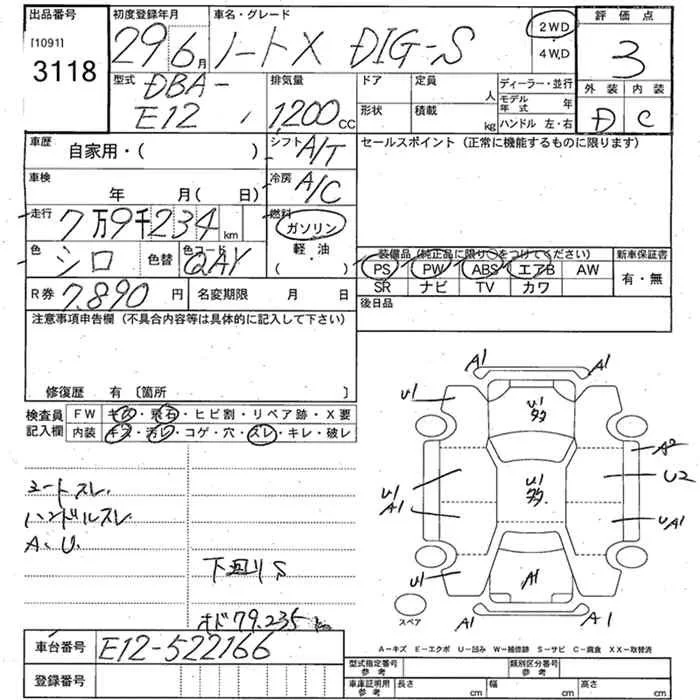 出品番号 初度登録年月 車名・グレード 2WD 評価点
[1091] 3118 29 6月 ノートX DIG-S 4W,D 3
型式 DBA-E12 排気量 1,200cc ドア 定員 人 ディーラー・並行 外装 内装
形状 積載 kg モデル年式 年 ハンドル 左・右 D C
車歴 自家用・( ) シフト A/T セールスポイント (正常に機能するものに限ります)
車検 年 月( 日) 冷房 A/C
走行 7万9千234km 燃料 ガソリン
軽・油
・
( )
色 シロ 色替 色コード QAY
装備品 (純正品に限り○をつけてください) 新車保証書
PS PW ABS エアB AW 有・無
SR ナビ TV カワ
R券 7,890円 名変期限 月 日 後日品
注意事項申告欄 (不具合内容等は具体的に記入して下さい)
修復歴 有 〔箇所 〕
検査員記入欄 FW キズ・飛石・ヒビ割・リペア跡・X要
内装 キズ・汚レ・コゲ・穴・スレ・キレ・破レ
シートスレ、
ハンドルスレ
A、U、
下廻りS
オド79,235km
A1 A1
U1 U1多
A2
U1 U1多 U2
A1 UA1
U1 A1
A1 A1
スペア
A-キズ E-エクボ U-凹み W-補修跡 S-サビ C-腐食 XX-取替済
車台番号 E12-522166
登録番号
型式指定番号 参考 類別区分番号 参考
車庫証明用 参考 長さ cm 幅 cm 高さ cm